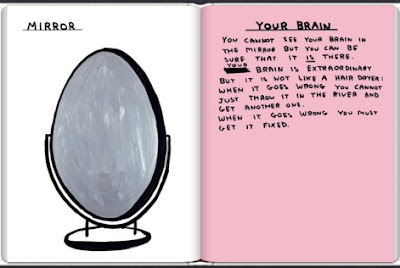 MIRROR
YOUR BRAIN
YOU CANNOT SEE YOUR BRAIN IN
THE MIRROR BUT YOU CAN BE
SURE THAT IT IS THERE.
YOUR
BRAIN IS EXTRAORDINARY
BUT IT IS NOT LIKE A HAIR DRYER:
WHEN IT GOES WRONG YOU CANNOT
JUST THROW IT IN THE RIVER AND
GET ANOTHER ONE.
WHEN IT GOES WRONG YOU MUST
GET IT FIXED.